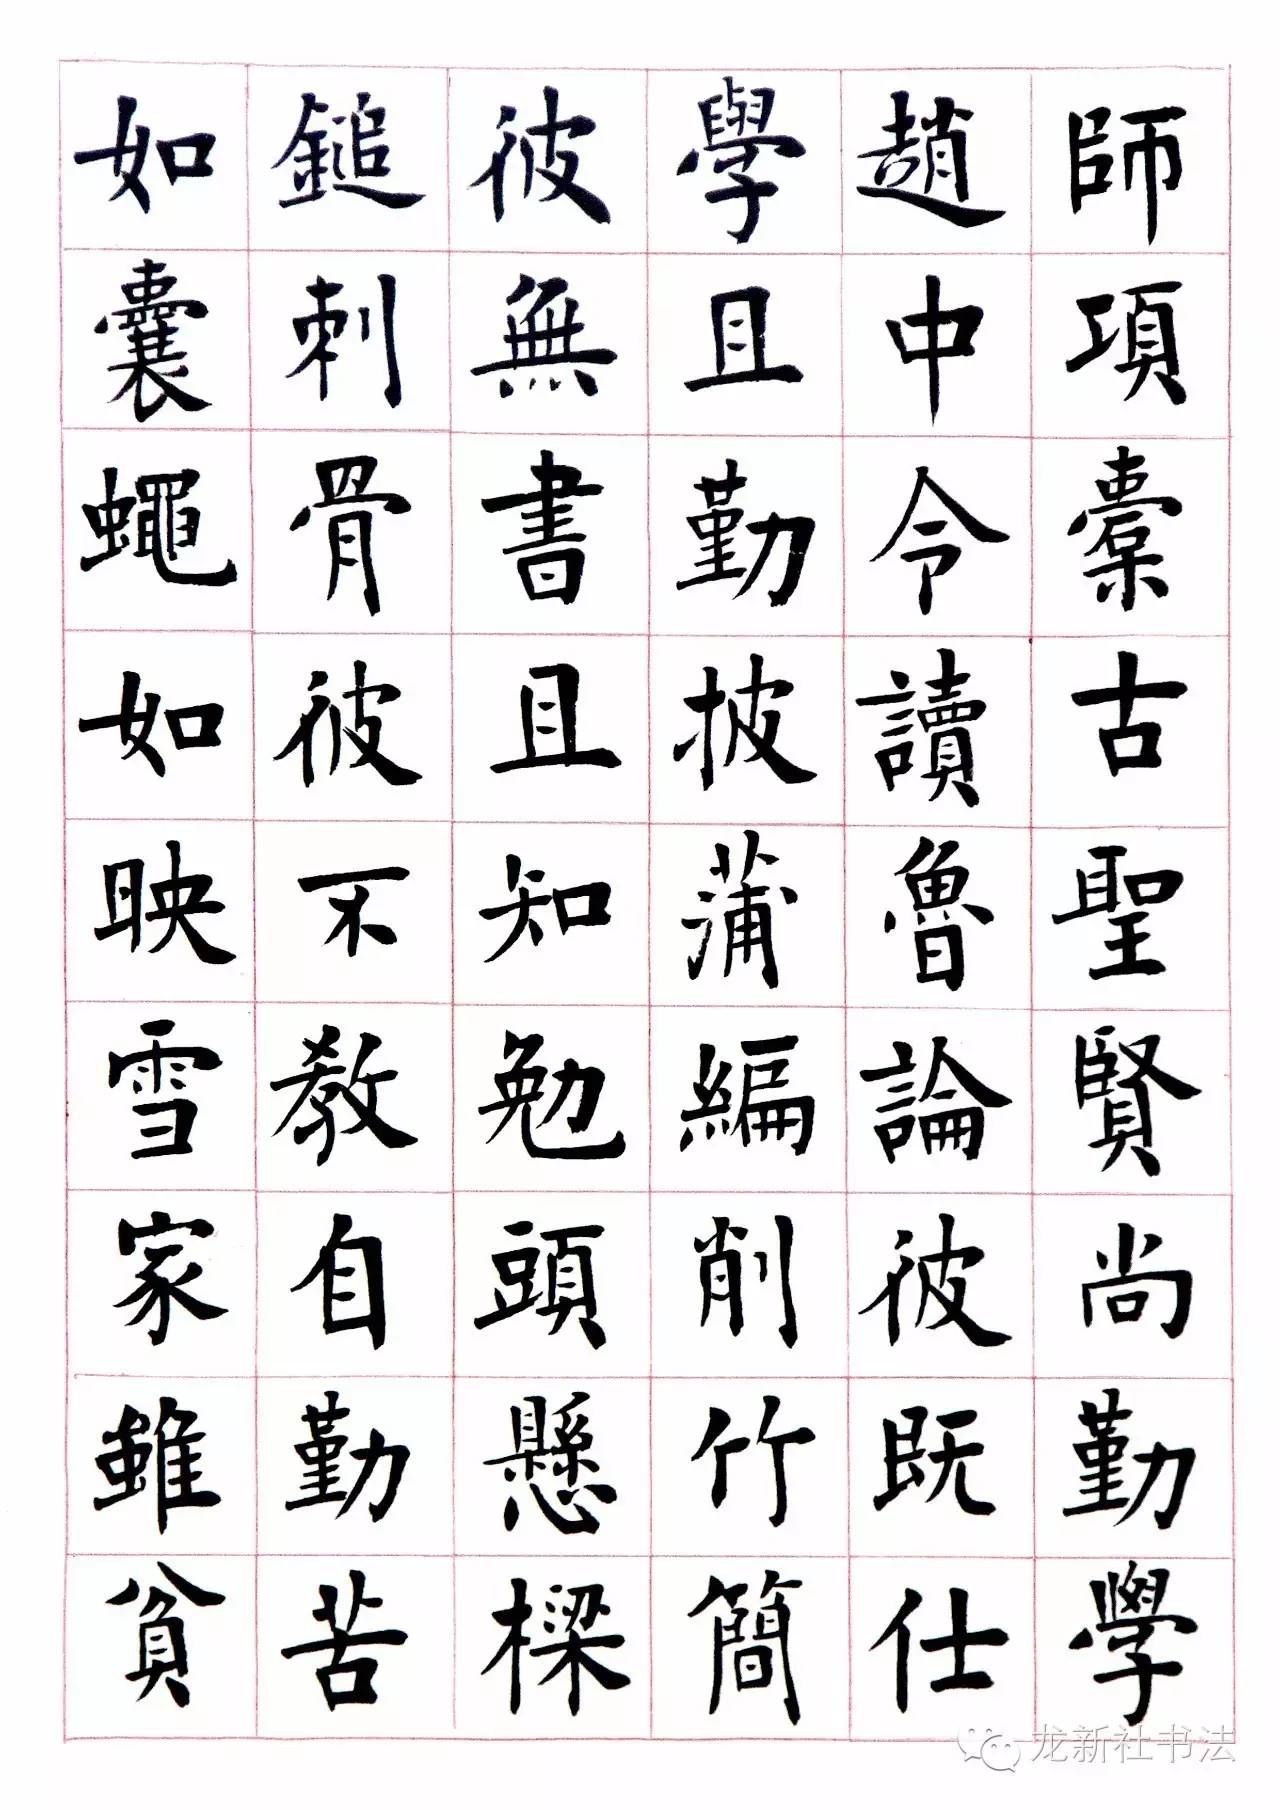 師項橐古聖賢尚勤學
趙中令讀魯論彼既仕
學且勤披蒲編削竹簡
彼無書且知勉頭懸樑
錐刺骨彼不教自勤苦
如囊螢如映雪家雖貧
龙新社书法